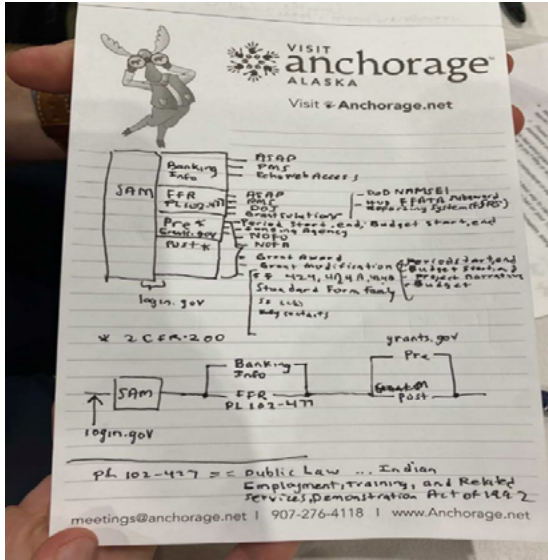 VISIT
anchorage
ALASKA
Visit Anchorage.net
SAM
Banking
Info
ASAP
PMS
Echo Web Access
FFR
PL 102-477
ASAP
PMS
DOJ
GrantSolutions
DoD NAMSEI
FFATA Subaward
Reporting System (FSRS)
Pre*
Grants.gov
Period Start, end, Budget Start, end
Funding Agency
NOFO
NOFA
Post *
Grant Award
Grant Modification
SF 424, 424A,
Standard Form family
Key contacts
Period start, end
Budget Start, end
Project narrative
Budget
login.gov
* 2 CFR.200
grants.gov
SAM
Banking
Info
FFR
PL 102-477
Pre
Post
login.gov
PL 102-427 == Public Law ... Indian
Employment, Training, and Related
Services, Demonstration Act of 1992
meetings@anchorage.net | 907-276-4118 | www.Anchorage.net